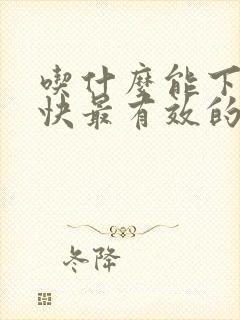 喫什麼能下
快最有效的
冬降